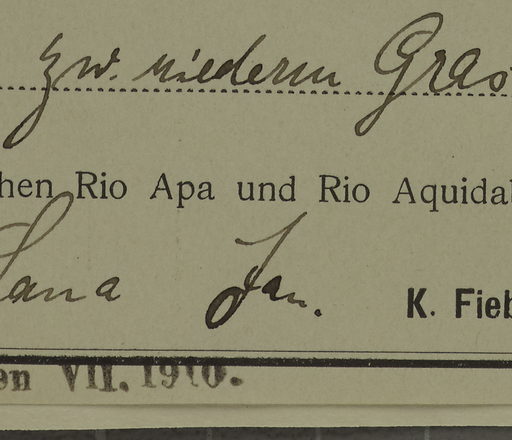 zw. niederm Gras
hen Rio Apa und Rio Aquidab
Sana Jan. K. Fieb
en VII. 1910.